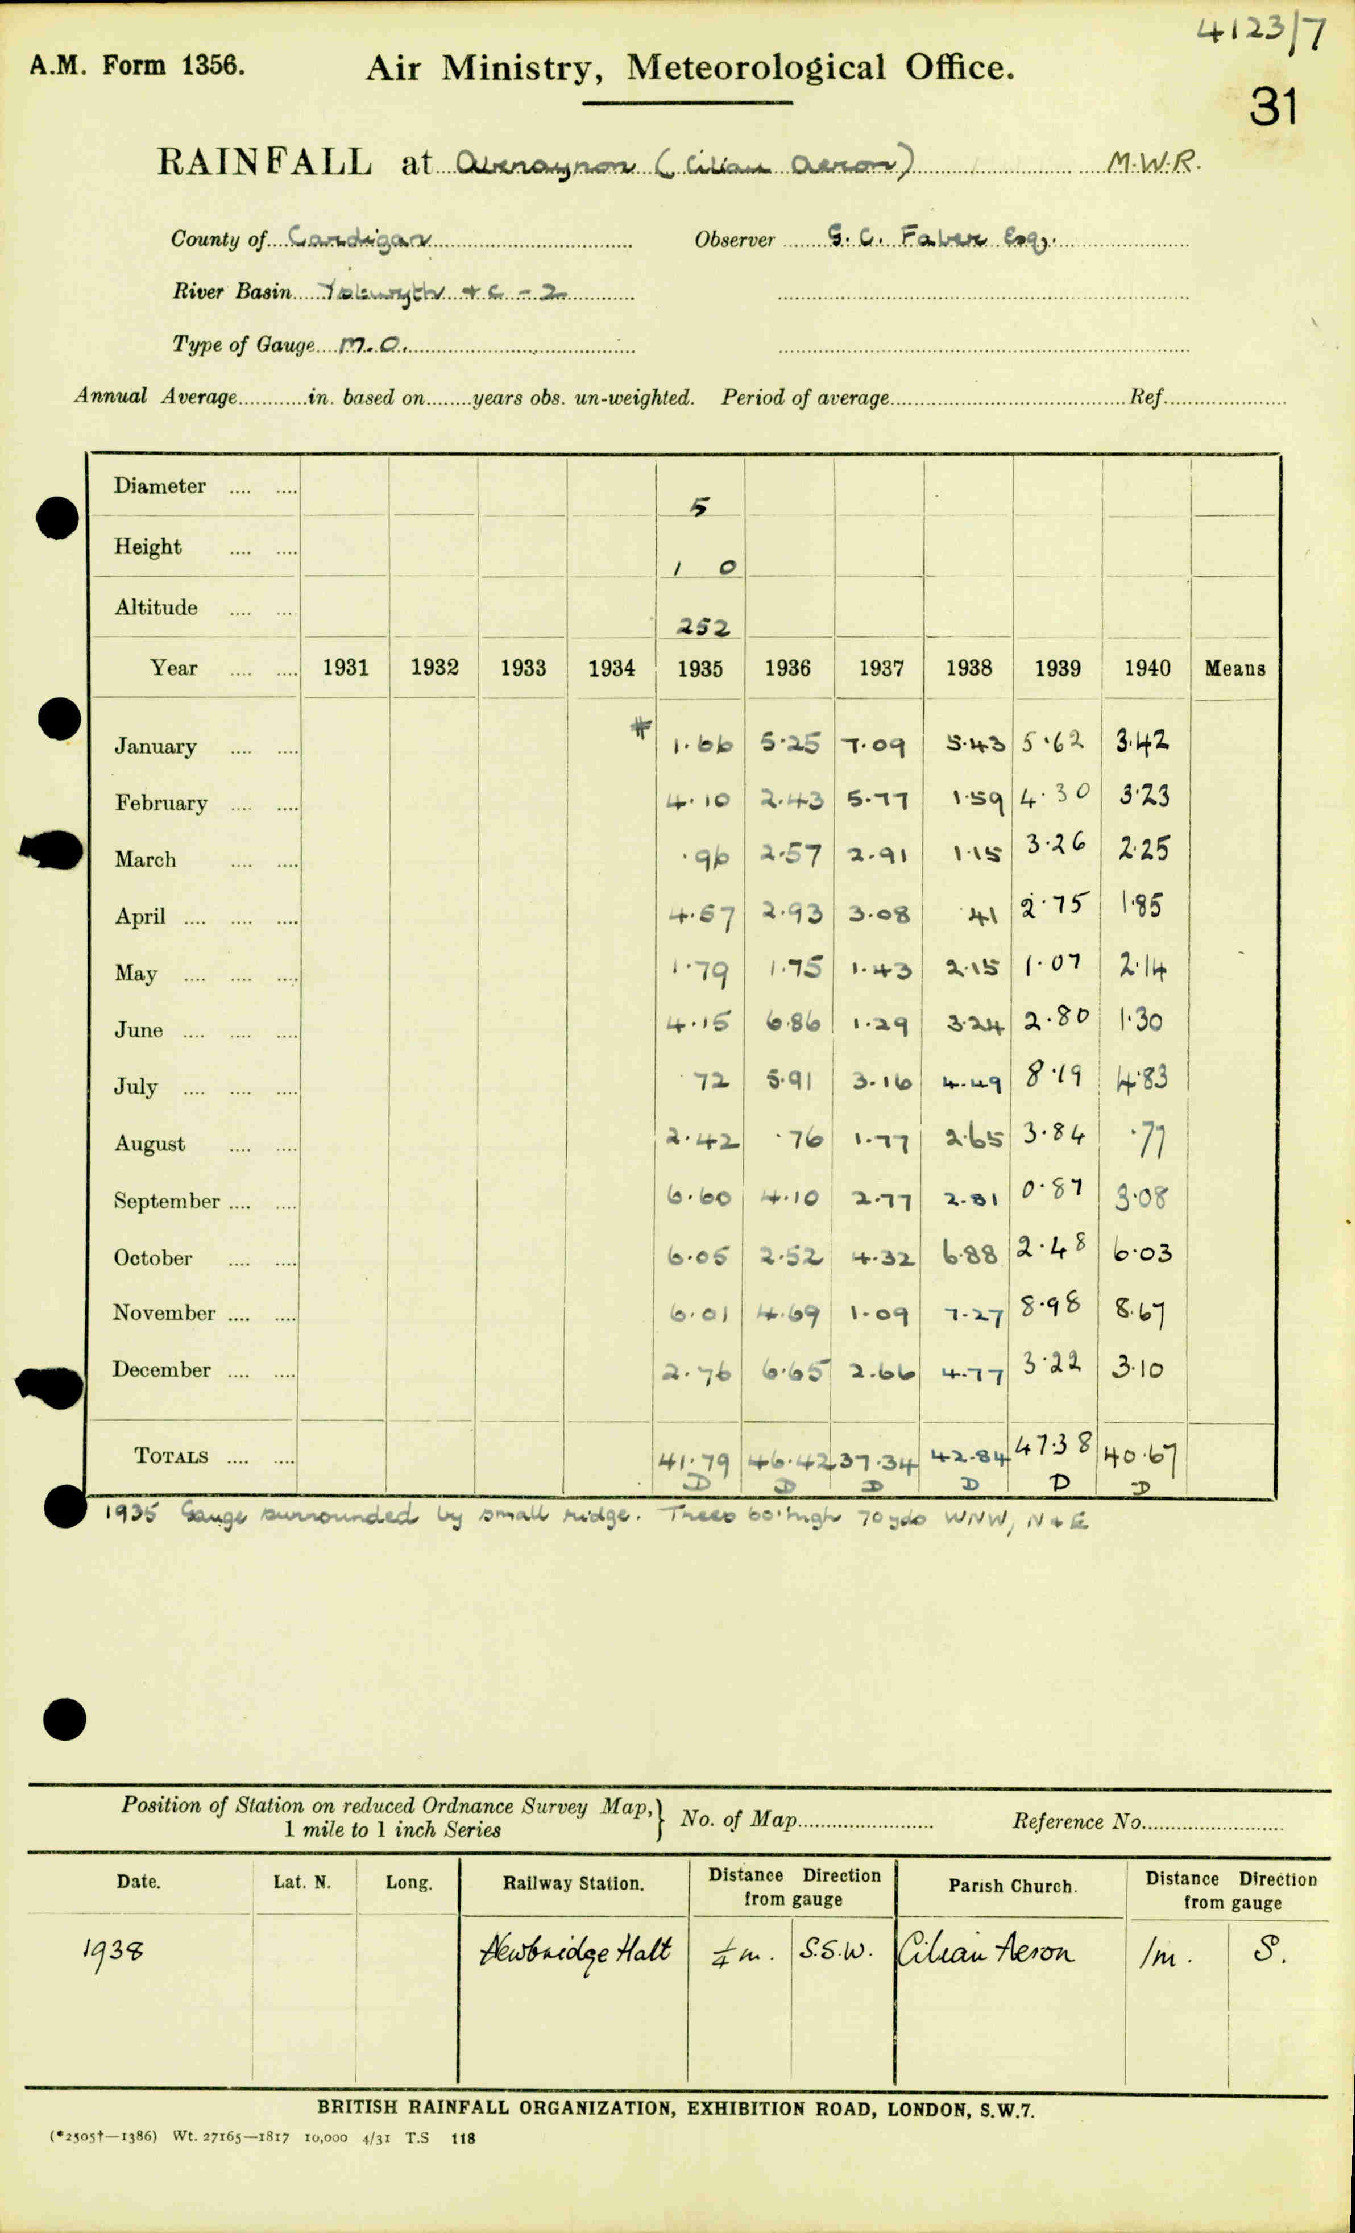 4123/7
A.M. Form 1356. Air Ministry, Meteorological Office.
31
RAINFALL at Aberayron (Cilian Aeron) M.W.R.
County of Cardigan Observer G. C. Faber Esq.
River Basin Ystwyth & C - 2
Type of Gauge M.O.
Annual Average in. based on years obs. un-weighted. Period of average Ref.
Diameter 5
Height 1 0
Altitude 252
Year 1931 1932 1933 1934 1935 1936 1937 1938 1939 1940 Means
January # 1.66 5.25 7.09 5.43 5.62 3.42
February 4.10 2.43 5.77 1.59 4.30 3.23
March .96 2.57 2.91 1.15 3.26 2.25
April 4.57 2.93 3.08 41 2.75 1.85
May 1.79 1.75 1.43 2.15 1.07 2.14
June 4.15 6.86 1.29 3.24 2.80 1.30
July 72 5.91 3.16 4.49 8.19 4.83
August 2.42 .76 1.77 2.65 3.84 .77
September 6.60 4.10 2.77 2.81 0.87 3.08
October 6.05 2.52 4.32 6.88 2.48 6.03
November 6.01 4.69 1.09 7.27 8.98 8.67
December 2.76 6.65 2.66 4.77 3.22 3.10
TOTALS 41.79 46.42 37.34 42.84 47.38 40.67
D D D D D D
1935 Gauge surrounded by small ridge. Trees 60' high 70 yds WNW, N & E
Position of Station on reduced Ordnance Survey Map, } No. of Map Reference No.
1 mile to 1 inch Series
Date. Lat. N. Long. Railway Station. Distance Direction from gauge Parish Church. Distance Direction from gauge
1938 Newbridge Halt ¼ m. S.S.W. Cilian Aeron 1m. S.
BRITISH RAINFALL ORGANIZATION, EXHIBITION ROAD, LONDON, S.W.7.
(*2505†—1386) Wt. 27165—1817 10,000 4/31 T.S 118